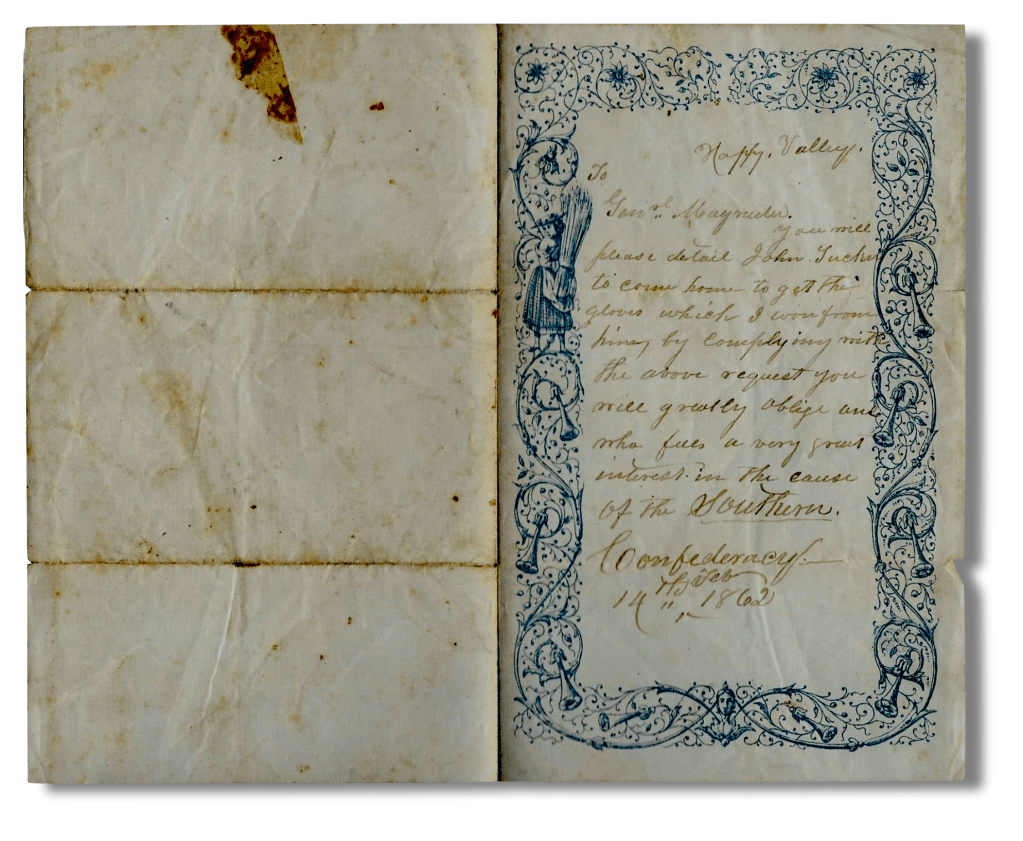 Happy. Valley.
To
Genrl. Magruder.
you will
please detail John Tucker
to come home to get the
gloves which I won from
him, by complying with
the above request you
will greatly oblige one
who feels a very great
interest in the cause
of the Southern.
Confederacy.
14th Feb 1862